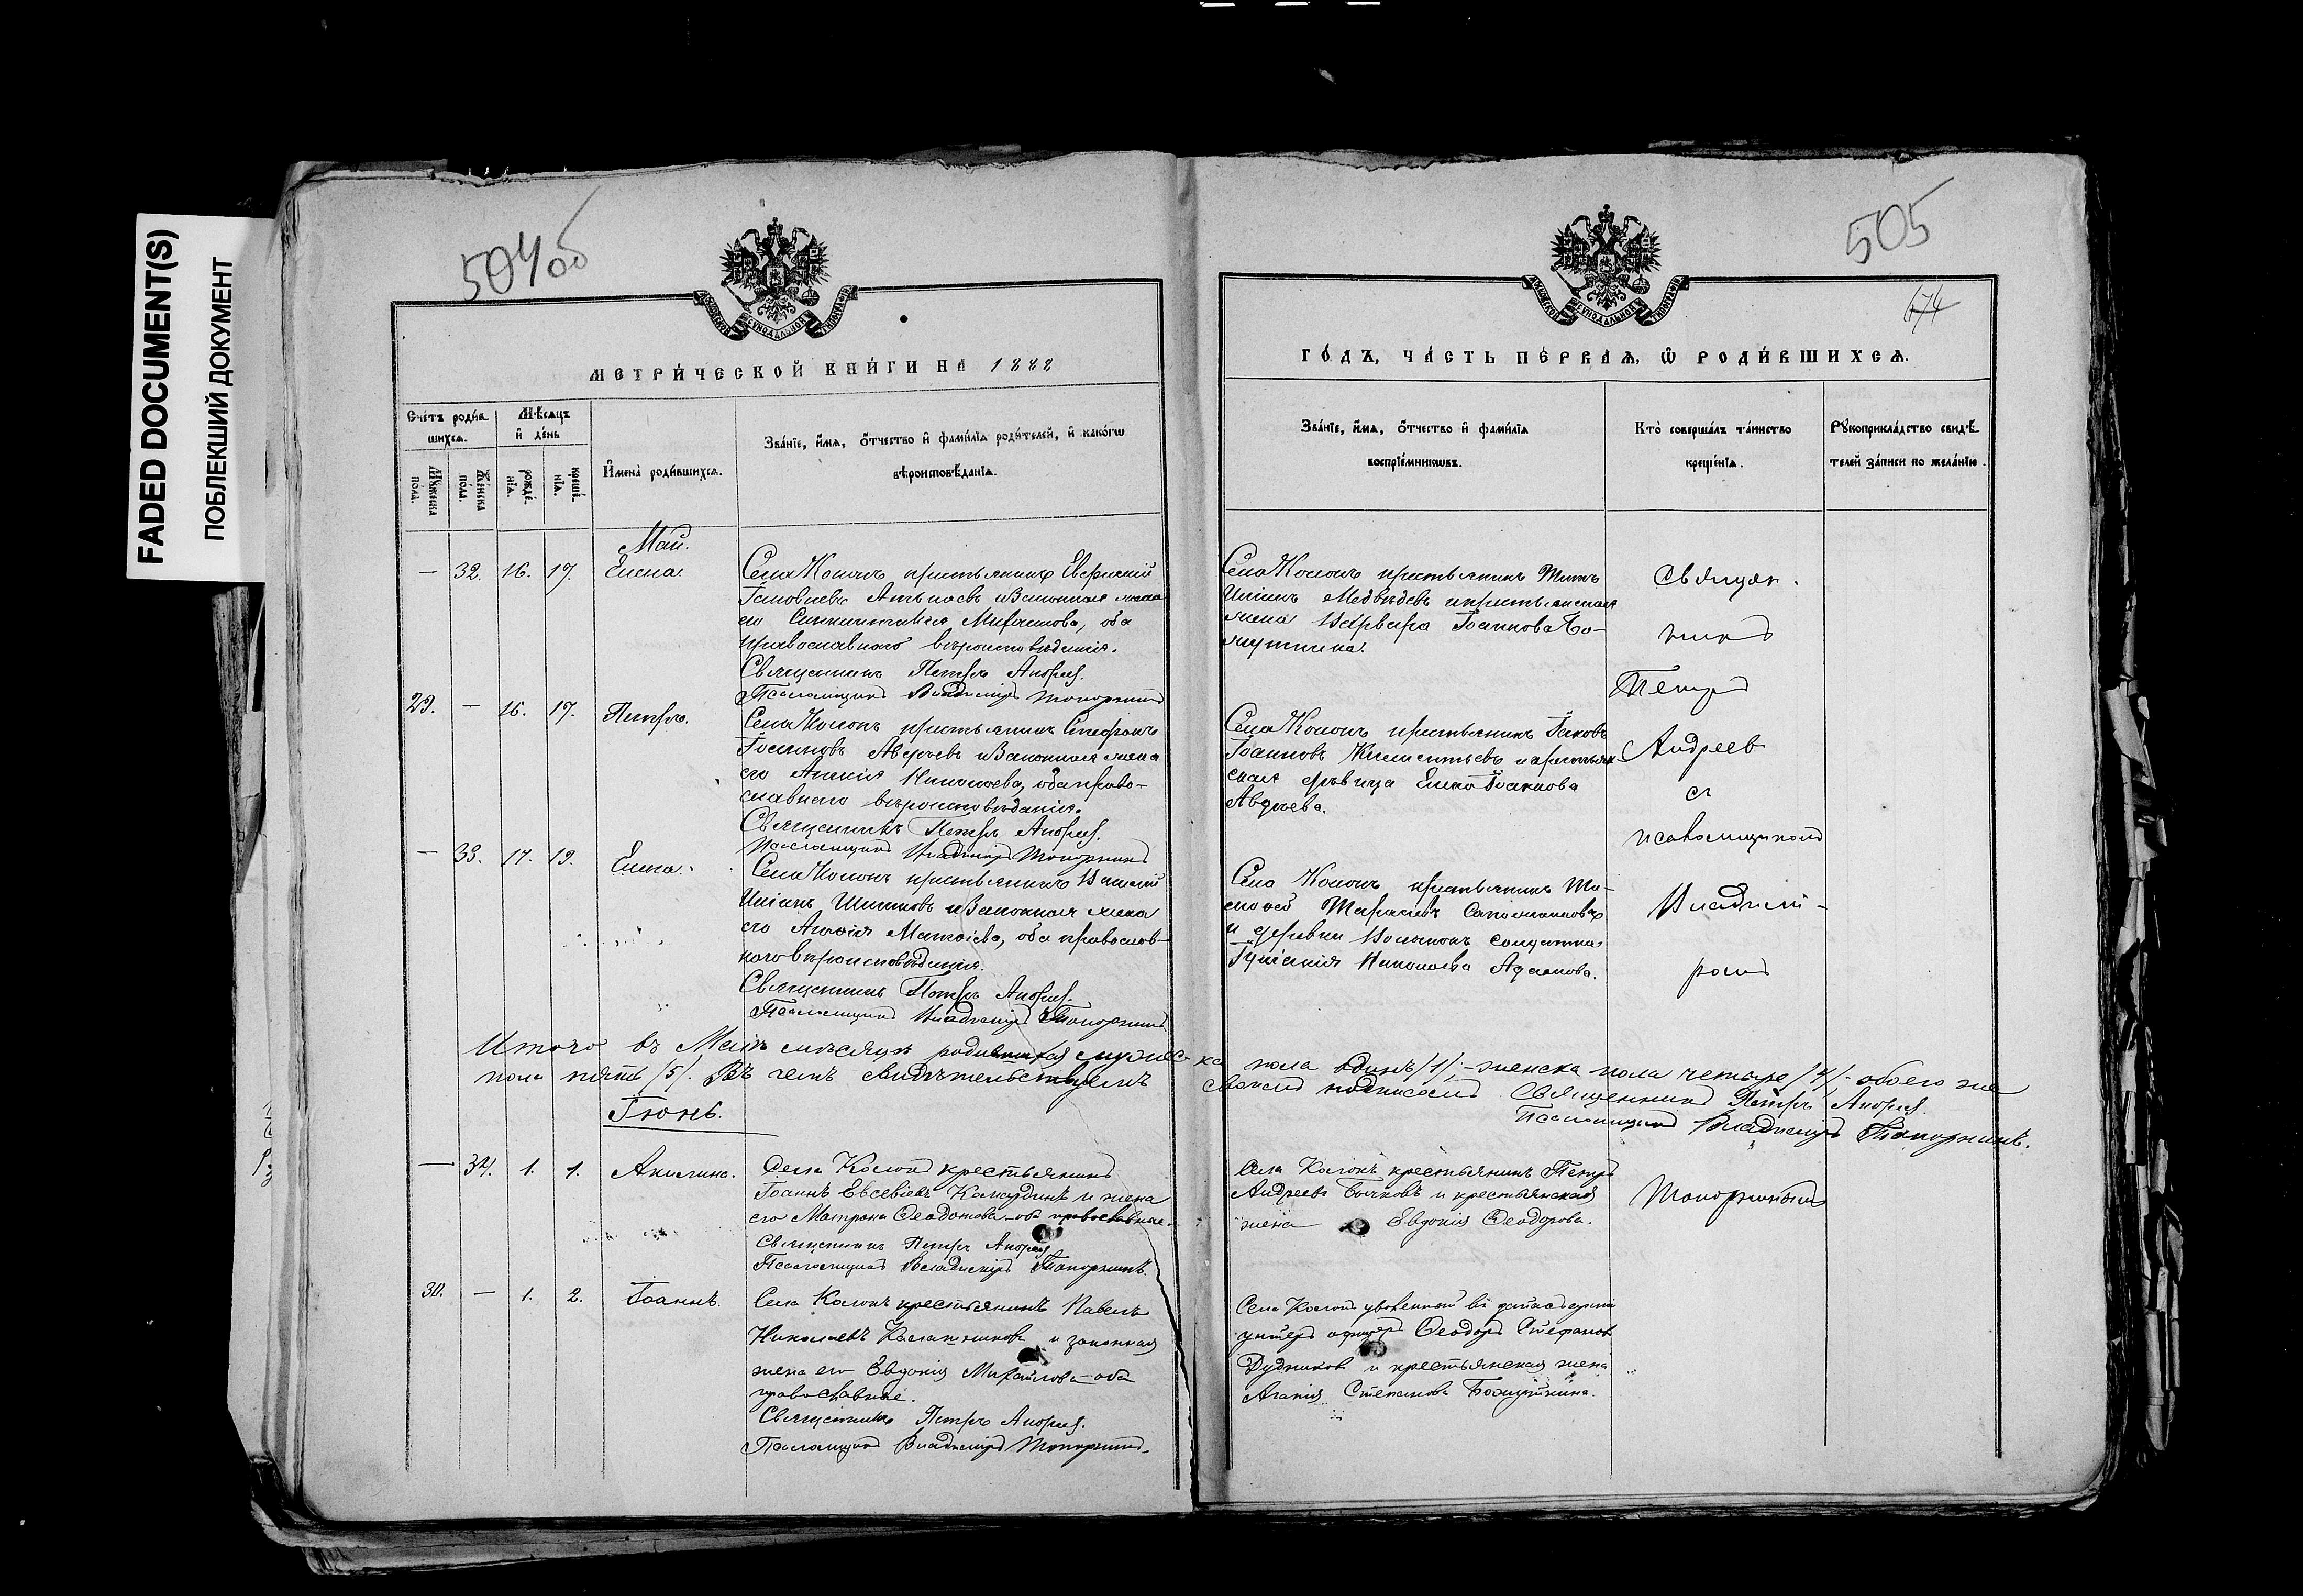 FADED DOCUMENT(S)
ПОБЛЕКШИЙ ДОКУМЕНТ
504об
505
174
МЕТРИ́ЧЕСКОЙ КНИ́ГИ НА 1888
ГО́ДЪ, ЧА́СТЬ ПЕ́РВАѦ, Ѽ РОДИ́ВШИХСѦ.
Сче́тъ роди́в-
шихсѧ.
Мѣ́сѧцъ
и҆ де́нь
Мꙋ́жеска
по́ла.
Же́нска
по́ла.
рожде́-
нїѧ.
креще́-
нїѧ.
И҆мена̀ роди́вшихсѧ.
Зва́нїе, и҆́мѧ, ѻ҆́тчество и҆ фами́лїѧ роди́телей, и҆ како́гѡ
вѣроисповѣ́данїѧ.
Зва́нїе, и҆́мѧ, ѻ҆́тчество и҆ фами́лїѧ
воспрїе́мникѡвъ.
Кто̀ соверша́лъ та́инство
креще́нїѧ.
Рꙋкоприкла́дство свидѣ́-
телей за́писи по жела́нїю.
Май.
— 32. 16. 17. Елена.
Села Колонъ крестьянинъ
законная жена
его Михаилова, оба
православного вѣроисповѣданія.
Священникъ Петръ Андреев.
Псаломщикъ Владиміръ Топорнинъ
Села Колонъ крестьянинъ Титъ
Медвѣдевъ и крестьянская
жена Варвара Іоаннова Бо-
лушкина.
29. — 16. 17. Петръ.
Села Колонъ крестьянинъ Стефанъ
Іоанновъ Авдѣевъ и законная жена
его Николаева, оба право-
славного вѣроисповѣданія.
Священникъ Петръ Андреев.
Псаломщикъ Владиміръ Топорнинъ
Села Колонъ крестьянинъ Іаковъ
Іоанновъ и крестьян-
ская дѣвица Елена Іоаннова
Авдѣева.
— 33. 17. 19. Елена.
Села Колонъ крестьянинъ Василій
Шишковъ и законная жена
его Матвіева, оба православ-
ного вѣроисповѣданія.
Священникъ Петръ Андреев.
Псаломщикъ Владиміръ Топорнинъ
Села Колонъ крестьянинъ Ти-
мофей Тарасіевъ
и деревни солдатка
Іуліанія Николаева
Священ-
никъ
Петръ
Андреев
съ
псаломщикомъ
Владимі-
ромъ
Топорнинымъ
Итого въ Маѣ мѣсяцѣ родившихся мужес-
ка пола одинъ /1/, - женска пола четыре /4/, - обоего же
пола пять /5/. Въ чемъ свидѣтельствуемъ
своимъ подписомъ Священникъ Петръ Андреев.
Псаломщикъ Владиміръ Топорнинъ.
Іюнь.
— 34. 1. 1. Акилина.
Села Колонъ крестьянинъ
Іоаннъ Евсевіевъ Камардинъ и жена
его Матрона Ѳеодотова - оба православные.
Священникъ Петръ Андреев
Псаломщикъ Владиміръ Топорнинъ.
Села Колонъ крестьянинъ Петръ
Андреевъ Бычковъ и крестьянская
жена Евдокія Ѳеодорова.
30. — 1. 2. Іоаннъ.
Села Колонъ крестьянинъ Павелъ
Николаевъ Калашниковъ и законная
жена его Евдокія Михайлова - оба
православные.
Священникъ Петръ Андреев.
Псаломщикъ Владиміръ Топорнинъ.
Села Колонъ уволенный въ запасъ арміи
унтеръ офицеръ Ѳеодоръ Стефановъ
Дудниковъ и крестьянская жена
Агапія Степанова Болушкина.